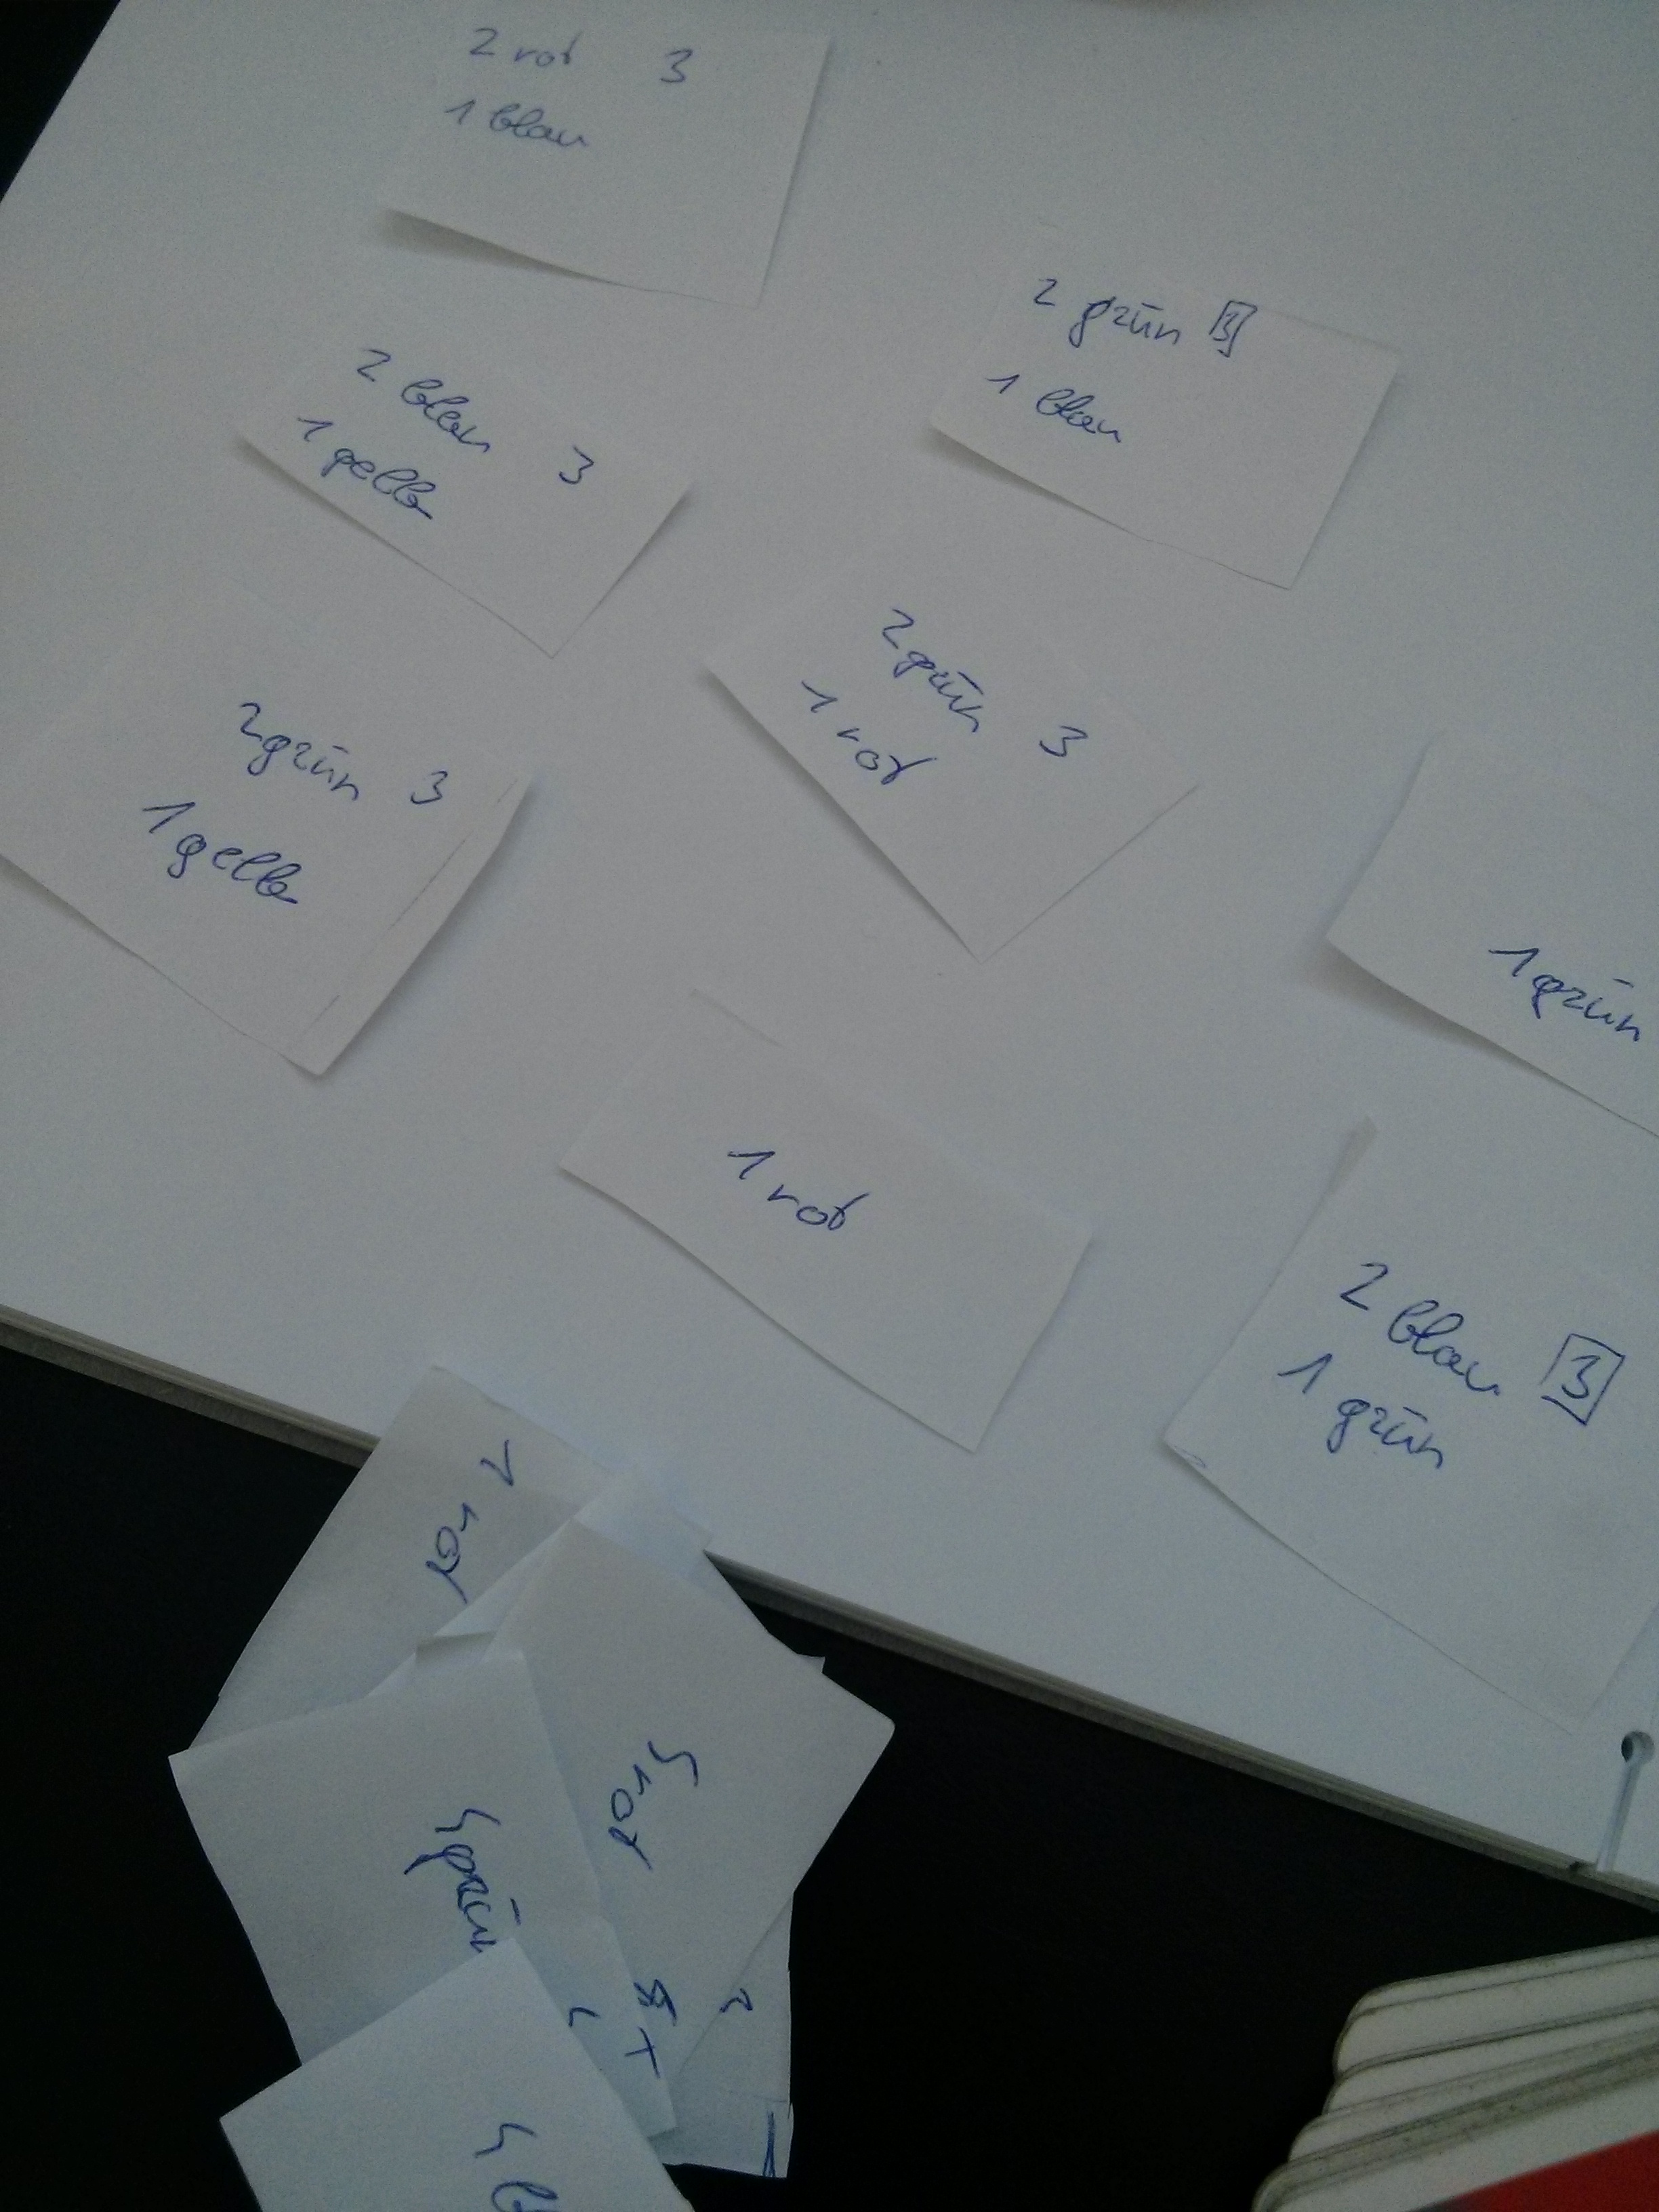 2 rot 3
1 blau
2 grün 3
1 blau
2 blau 3
1 gelb
2 grün 3
1 rot
2 grün 3
1 gelb
1 grün
1 rot
2 blau 3
1 grün
1 rot
4 rot
4 grün
4